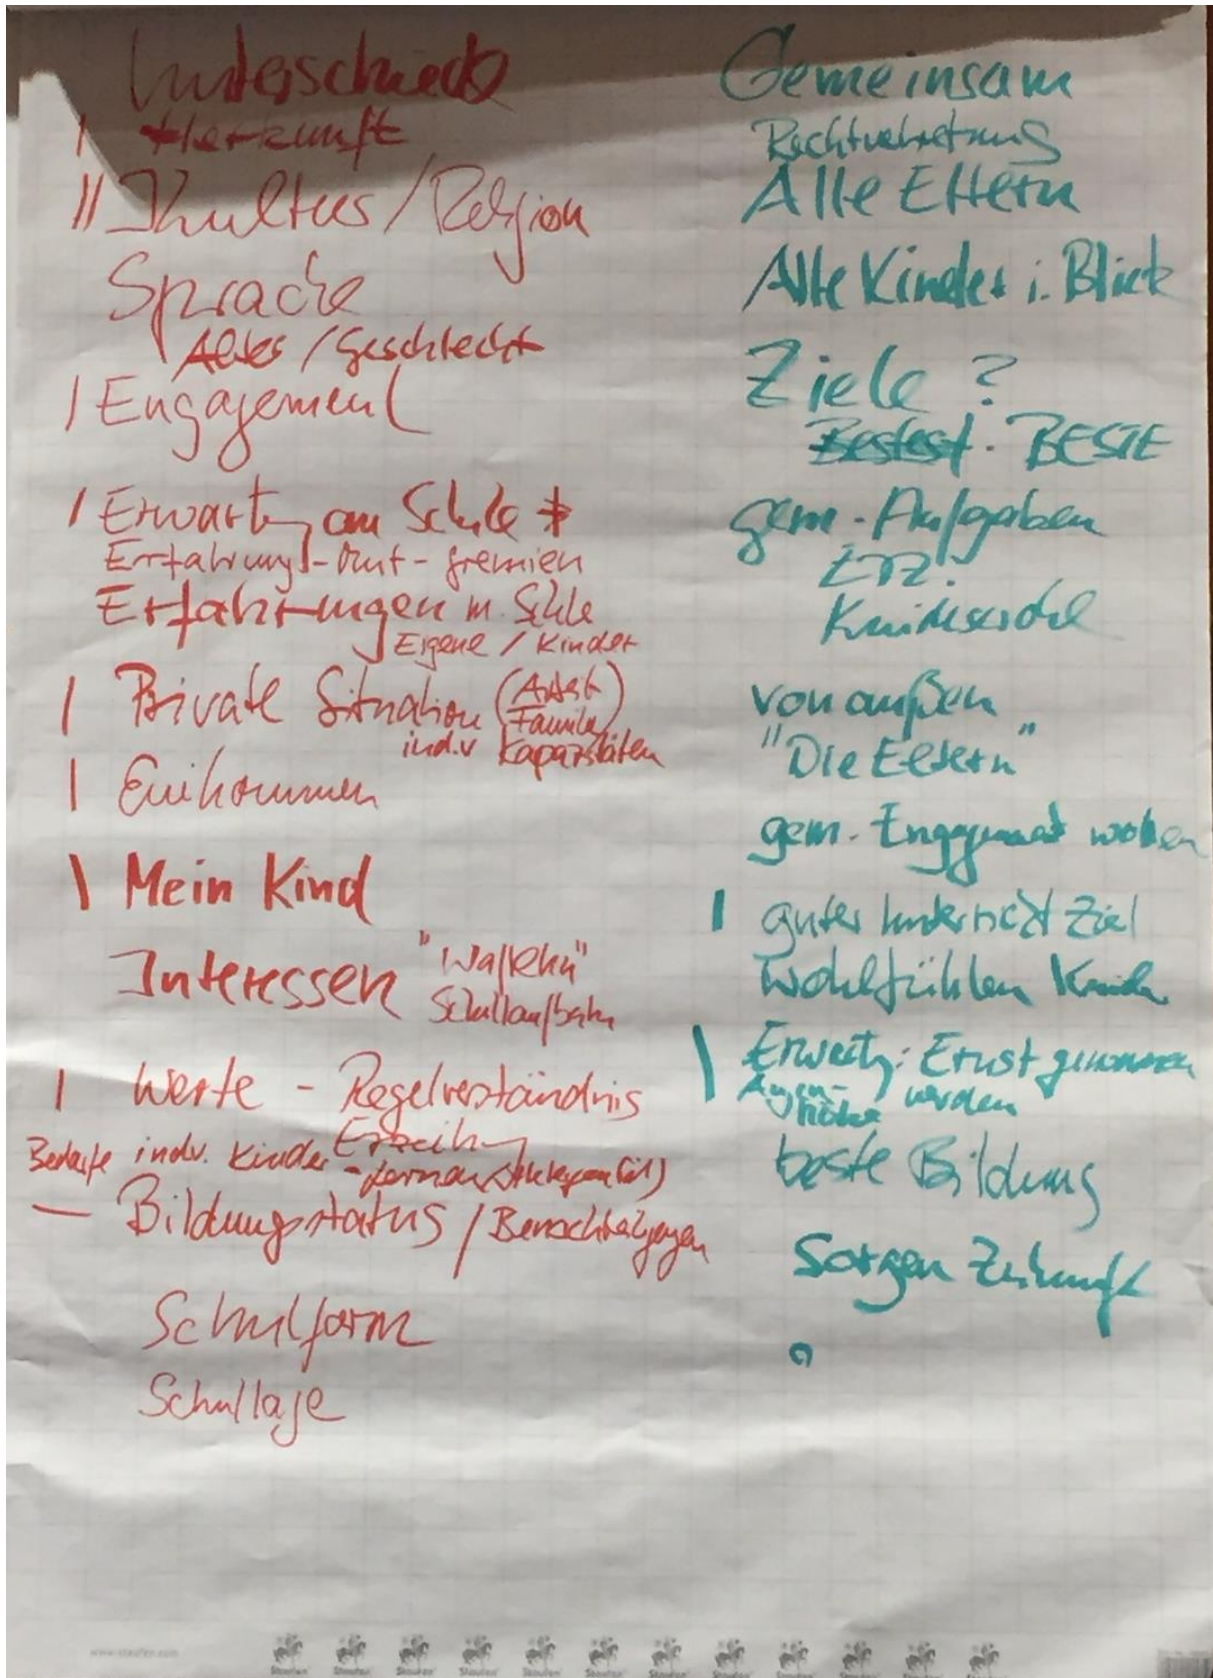 Unterschiede
Herkunft
Kultur / Religion
Sprache
Alter / Geschlecht
Engagement
Erwart an Schule
Erfahrung - Amt - gremien
Erfahrungen m. Schule
Eigene / Kinder
Private Situation (Arbeit
Familie)
indiv Kapazitäten
Einkommen
Mein Kind
Interessen
Schullaufbahn
Werte - Regelverständnis
Erziehung
Bedarfe indv. Kinder
Bildungsstatus / Benachteiligungen
Schulform
Schullage
Gemeinsam
Rechtvertretung
Alle Eltern
Alle Kinder i. Blick
Ziele ?
BESTE
gem. Aufgaben
Erz.
Kindeswohl
von außen
"Die Eltern"
gem. Engagement wollen
guter Unterricht Ziel
Wohlfühlen Kinder
Erwartg: Ernst genommen
werden
Augenhöhe
beste Bildung
Sorgen Zukunft
www.staufen.com
Staufen Staufen Staufen Staufen Staufen Staufen Staufen Staufen Staufen Staufen Staufen Staufen